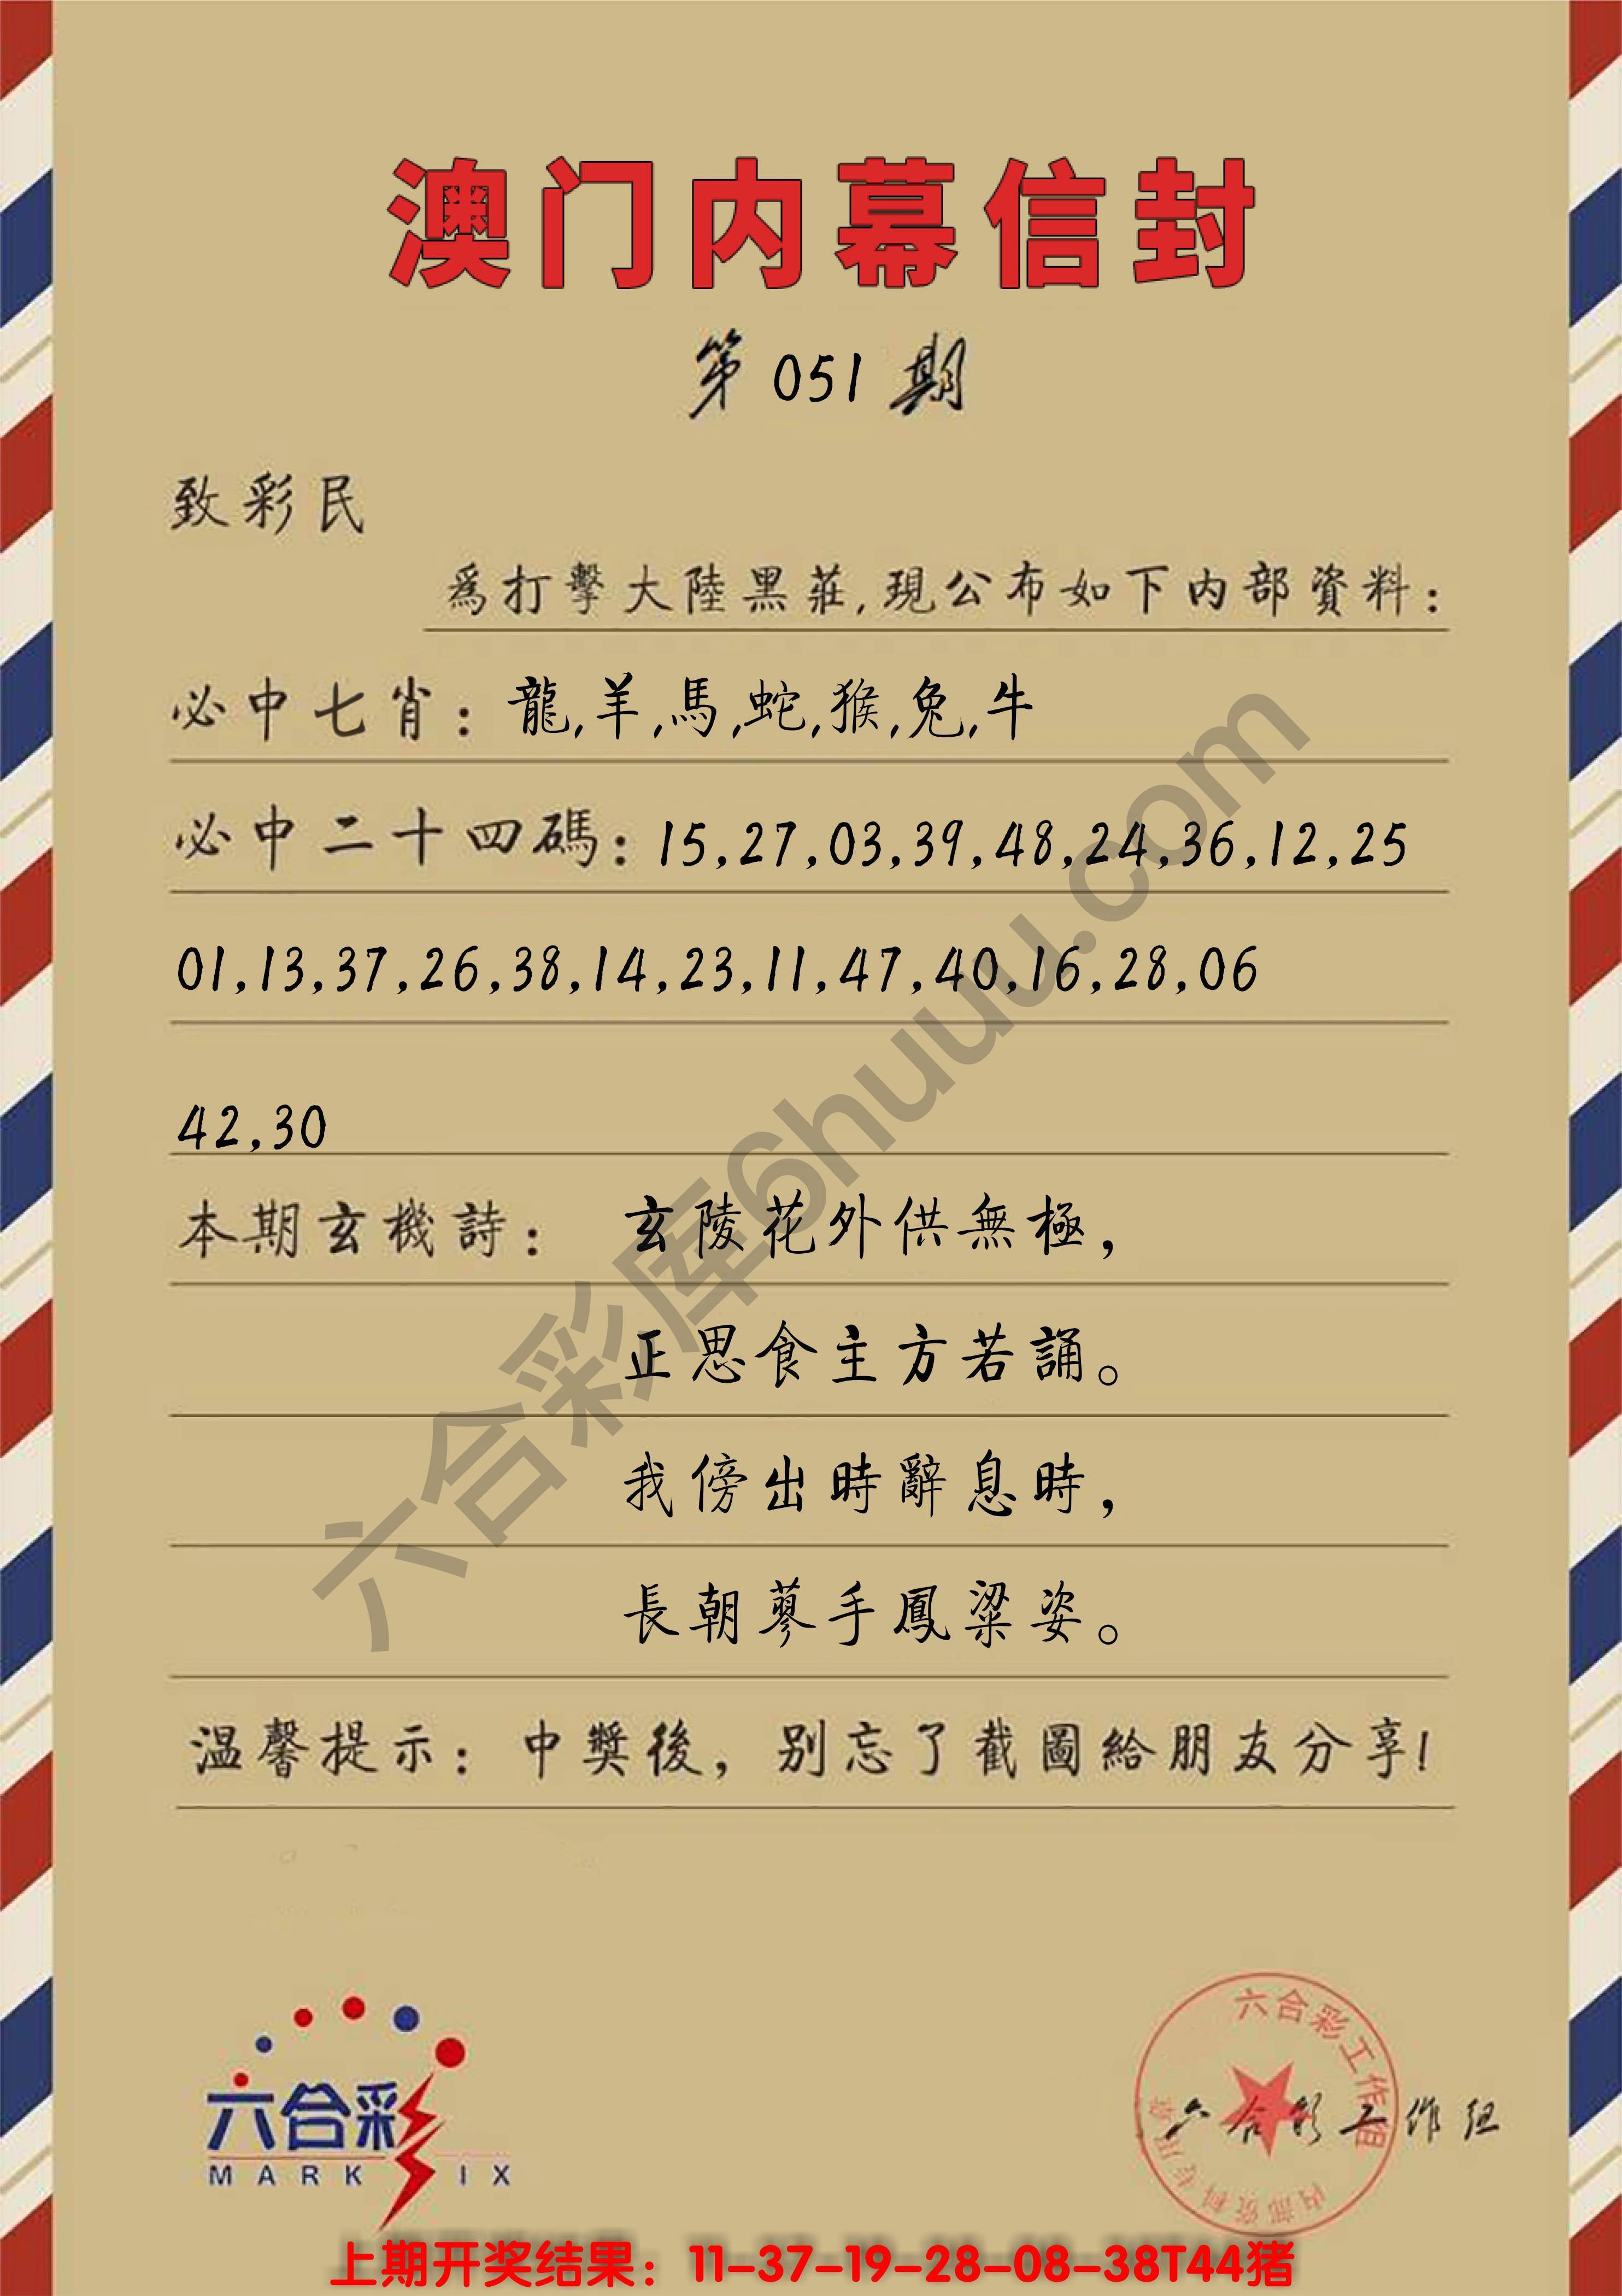 澳门内幕信封
第 051 期
致彩民
爲打擊大陸黑莊,現公布如下内部資料:
必中七肖: 龍,羊,馬,蛇,猴,兔,牛
必中二十四碼: 15,27,03,39,48,24,36,12,25
01,13,37,26,38,14,23,11,47,40,16,28,06
42,30
本期玄機詩: 玄陵花外供無極,
正思食主方若誦。
我傍出時辭息時,
長朝蓼手鳳粱姿。
温馨提示: 中獎後, 别忘了截圖給朋友分享!
六合彩库6huuu.com
六合彩
MARK IX
六合彩工作组
内部资料专用章
六合彩工作组
上期开奖结果: 11-37-19-28-08-38T44猪